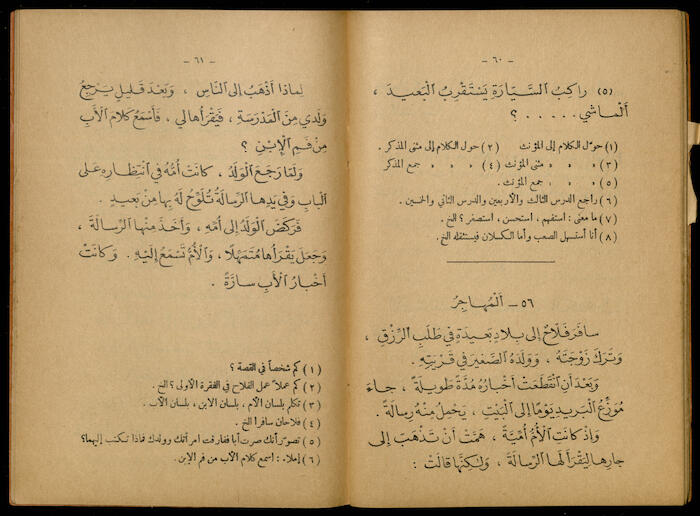 - ٦٠ -
(٥) راكِبُ السَّيّارَةِ يَسْتَقْرِبُ الْبَعيدَ ،
اَلْماشي . . . . . ؟
(١) حوّل الكلام إلى المؤنث (٢) حول الكلام إلى مثنى المذكر .
(٣) » » » مثنى المؤنث (٤) » » جمع المذكر
(٥) » » » جمع المؤنث .
(٦) راجع الدرس الثالث والأربعين والدرس الثاني والخمسين .
(٧) ما معنى : استفهم ، استحسن ، استصغر ؟ الخ .
(٨) أنا أستسهل الصعب وأما الكسلان فيستثقله الخ .
٥٦ - اَلْمُهاجِرُ
سافَرَ فَلاّحٌ إِلى بِلادٍ بَعيدَةٍ في طَلَبِ الرِّزْقِ ،
وَتَرَكَ زَوْجَتَهُ ، وَوَلَدَهُ الصَّغيرَ في قَرْيَتِهِ .
وَبَعْدَ أَنِ انْقَطَعَتْ أَخْبارُهُ مُدَّةً طَويلَةً ، جاءَ
مُوَزِّعُ الْبَريدِ يَوْمًا إِلى الْبَيْتِ ، يَحْمِلُ مِنْهُ رِسالَةً .
وَإِذْ كانَتِ الْأُمُّ أُمِّيَّةً ، هَمَّتْ أَنْ تَذْهَبَ إِلى
جارِها لِيَقْرَأَ لَها الرِّسالَةَ ، وَلكِنَّها قالَتْ :
- ٦١ -
لِماذا أَذْهَبُ إِلى النّاسِ ، وَبَعْدَ قَليلٍ يَرْجِعُ
وَلَدي مِنَ الْمَدْرَسَةِ ، فَيَقْرَأُها لي ، فَأَسْمَعُ كَلامَ الْأَبِ
مِنْ فَمِ الْاِبْنِ ؟
وَلَمّا رَجَعَ الْوَلَدُ ، كانَتْ أُمُّهُ في انْتِظارِهِ عَلى
الْبابِ وَفي يَدِها الرِّسالَةُ تُلَوِّحُ لَهُ بِها مِنْ بَعيدٍ .
فَرَكَضَ الْوَلَدُ إِلى أُمِّهِ ، وَأَخَذَ مِنْها الرِّسالَةَ ،
وَجَعَلَ يَقْرَأُها مُتَمَهِّلًا ، وَالْأُمُّ تَسْمَعُ إِلَيْهِ . وَكانَتْ
أَخْبارُ الْأَبِ سارَّةً .
(١) كم شخصاً في القصة ؟
(٢) كم عملاً عمل الفلاح في الفقرة الأولى ؟ الخ .
(٣) تكلم بلسان الأم ، بلسان الابن ، بلسان الأب .
(٤) فلاحان سافرا الخ .
(٥) تصوّر أنك صرت أبا ففارقت امرأتك وولدك فماذا تكتب إليهما ؟
(٦) إملاء : اسمع كلام الأب من فم الإبن .